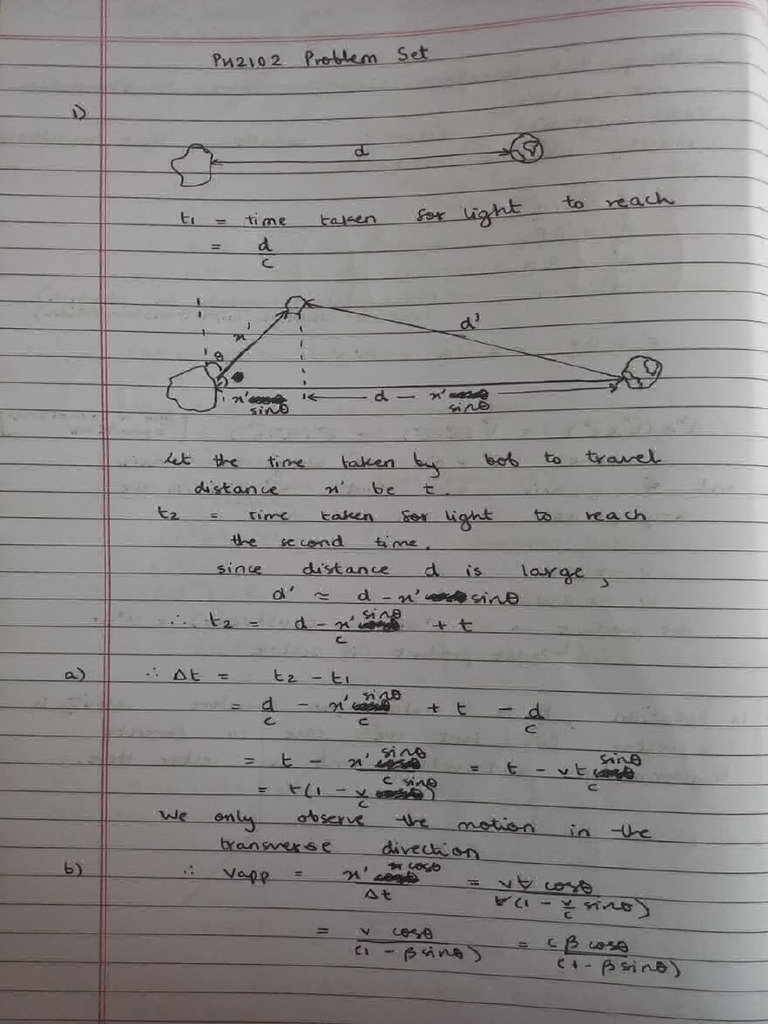 PH2102 Problem Set
1)
d
t1 = time taken for light to reach
= d/c
x' θ d'
x' sinθ d - x' sinθ
Let the time taken by bob to travel
distance x' be t.
t2 = time taken for light to reach
the second time.
since distance d is large,
d' ≈ d - x' sinθ
∴ t2 = (d - x' sinθ)/c + t
a) ∴ Δt = t2 - t1
= d/c - x' sinθ/c + t - d/c
= t - x' sinθ/c = t - vt sinθ/c
= t(1 - v/c sinθ)
We only observe the motion in the
transverse direction
b) ∴ vapp = x' cosθ/Δt = vt cosθ/t(1 - v/c sinθ)
= v cosθ/(1 - β sinθ) = cβ cosθ/(1 - β sinθ)